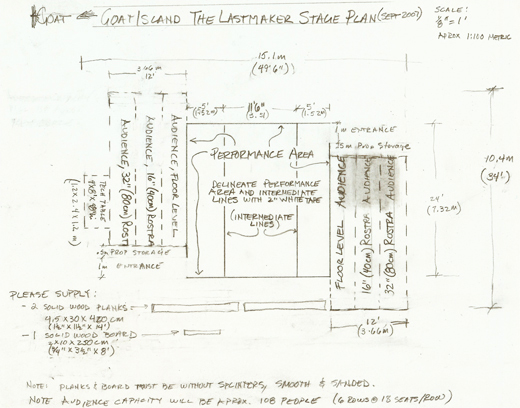 GOAT ISLAND THE LASTMAKER STAGE PLAN (SEPT 2007)
SCALE:
1/8" = 1'
APROX 1:100 METRIC
15.1 m
(49'6")
3.66 m
12'
5'
(1.52m)
11'6"
5'
(1.52m)
1m ENTRANCE
.5m PROP STORAGE
AUDIENCE, 32" (80cm) ROSTRA
AUDIENCE, 16" (40cm) ROSTRA
AUDIENCE, FLOOR LEVEL
PERFORMANCE AREA
DELINEATE PERFORMANCE
AREA AND INTERMEDIATE
LINES WITH 2" WHITE TAPE
(INTERMEDIATE
LINES)
FLOOR LEVEL AUDIENCE
16" (40cm) ROSTRA AUDIENCE
32" (80cm) ROSTRA AUDIENCE
10.4m
(34')
24'
(7.32m)
TECH TABLE
.5m PROP STORAGE
1m ENTRANCE
12'
(3.66m)
PLEASE SUPPLY:
- 2 SOLID WOOD PLANKS
4.5 X 30 X 420 cm
- 1 SOLID WOOD BOARD
2 X 10 X 250 cm
(3/4" X 3 1/2" X 8')
NOTE: PLANKS & BOARD MUST BE WITHOUT SPLINTERS, SMOOTH & SANDED.
NOTE AUDIENCE CAPACITY WILL BE APROX. 108 PEOPLE (6 ROWS @ 18 SEATS/ROW)